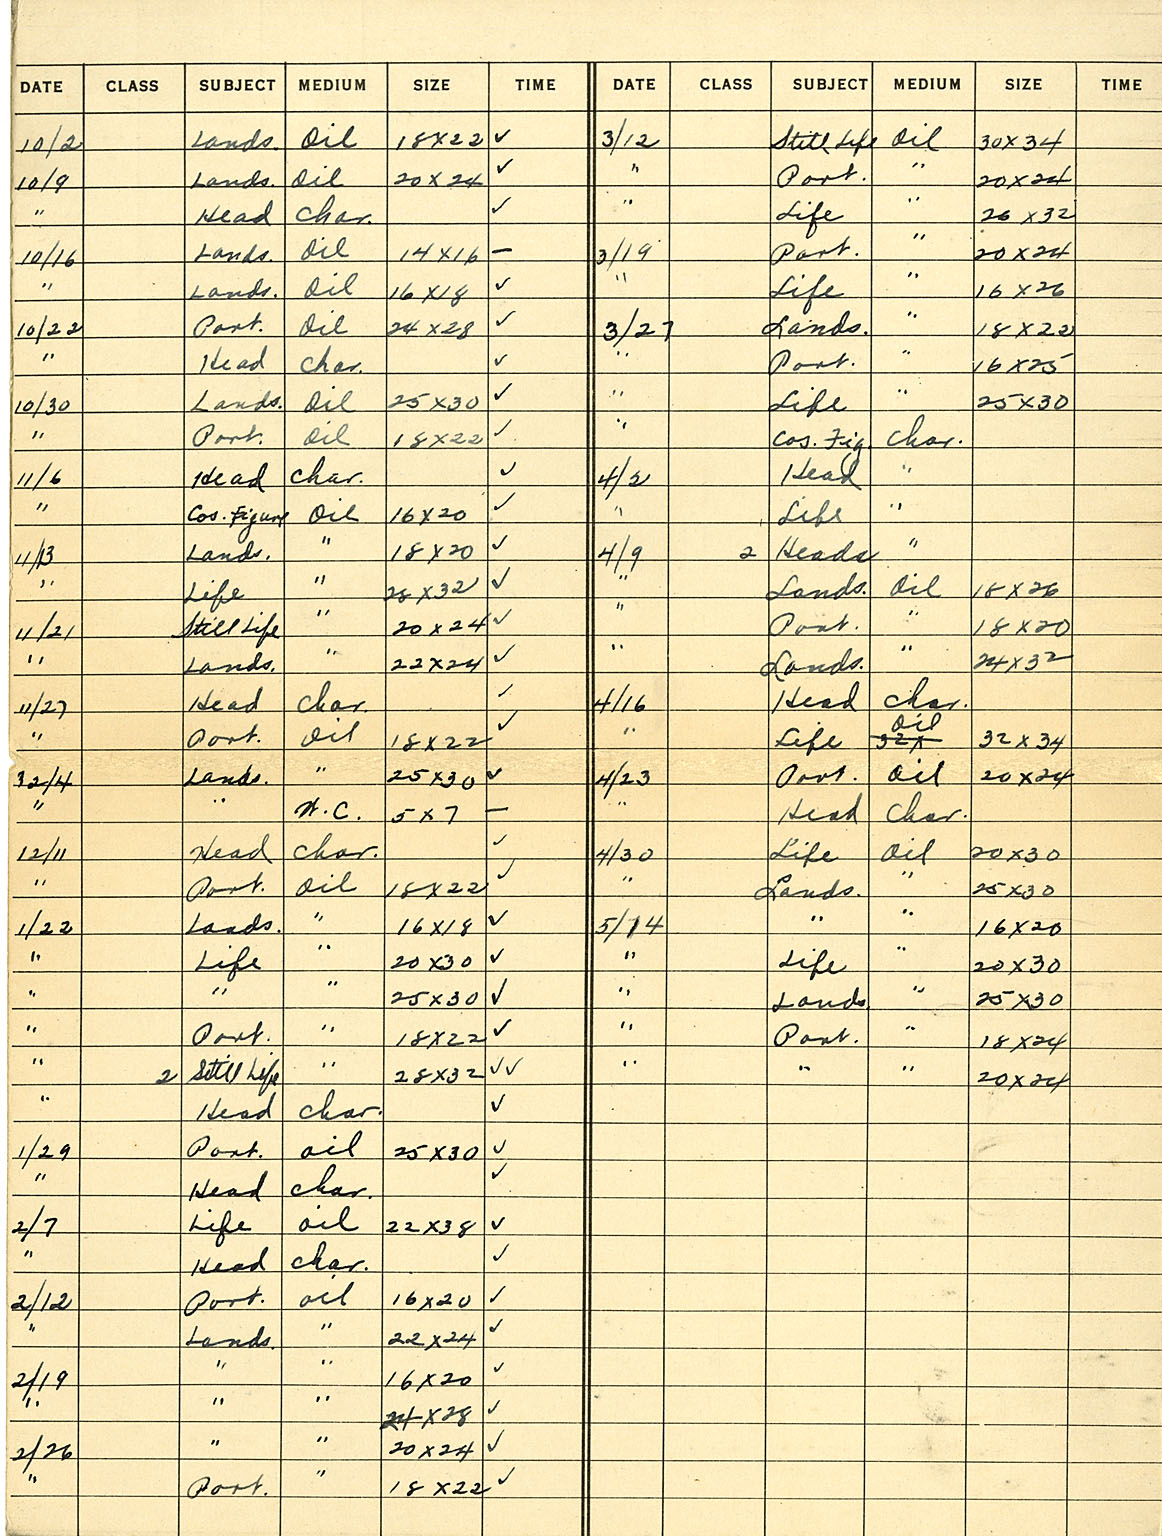 DATE CLASS SUBJECT MEDIUM SIZE TIME
10/2 Lands. Oil 18X22 ✓
10/9 Lands. Oil 20X24 ✓
" Head Char. ✓
10/16 Lands. Oil 14X16 —
" Lands. Oil 16X18 ✓
10/22 Port. Oil 24X28 ✓
" Head Char. ✓
10/30 Lands. Oil 25X30 ✓
" Port. Oil 18X22 ✓
11/6 Head Char. ✓
" Cos. Figure Oil 16X20 ✓
11/13 Lands. " 18X20 ✓
" Life " 28X32 ✓
11/21 Still Life " 20X24 ✓
" Lands. " 22X24 ✓
11/27 Head Char. ✓
" Port. Oil 18X22 ✓
12/4 Lands. " 25X30 ✓
" " W.C. 5X7 —
12/11 Head Char. ✓
" Port. Oil 18X22 ✓
1/22 Lands. " 16X18 ✓
" Life " 20X30 ✓
" " " 25X30 ✓
" Port. " 18X22 ✓
" 2 Still Life " 28X32 ✓✓
" Head Char. ✓
1/29 Port. Oil 25X30 ✓
" Head Char. ✓
2/7 Life Oil 22X38 ✓
" Head Char. ✓
2/12 Port. Oil 16X20 ✓
" Lands. " 22X24 ✓
2/19 " " 16X20 ✓
" " " 24X28 ✓
2/26 " " 20X24 ✓
" Port. " 18X22 ✓
DATE CLASS SUBJECT MEDIUM SIZE TIME
3/12 Still Life Oil 30X34
" Port. " 20X24
" Life " 26X32
3/19 Port. " 20X24
" Life " 16X26
3/27 Lands. " 18X22
" Port. " 16X25
" Life " 25X30
" Cos. Fig. Char.
4/2 Head "
" Life "
4/9 2 Heads "
" Lands. Oil 18X26
" Port. " 18X20
" Lands. " 24X32
4/16 Head Char.
" Life 32X Oil 32X34
4/23 Port. Oil 20X24
" Head Char.
4/30 Life Oil 20X30
" Lands. " 25X30
5/14 " " 16X20
" Life " 20X30
" Lands. " 25X30
" Port. " 18X24
" " " 20X24